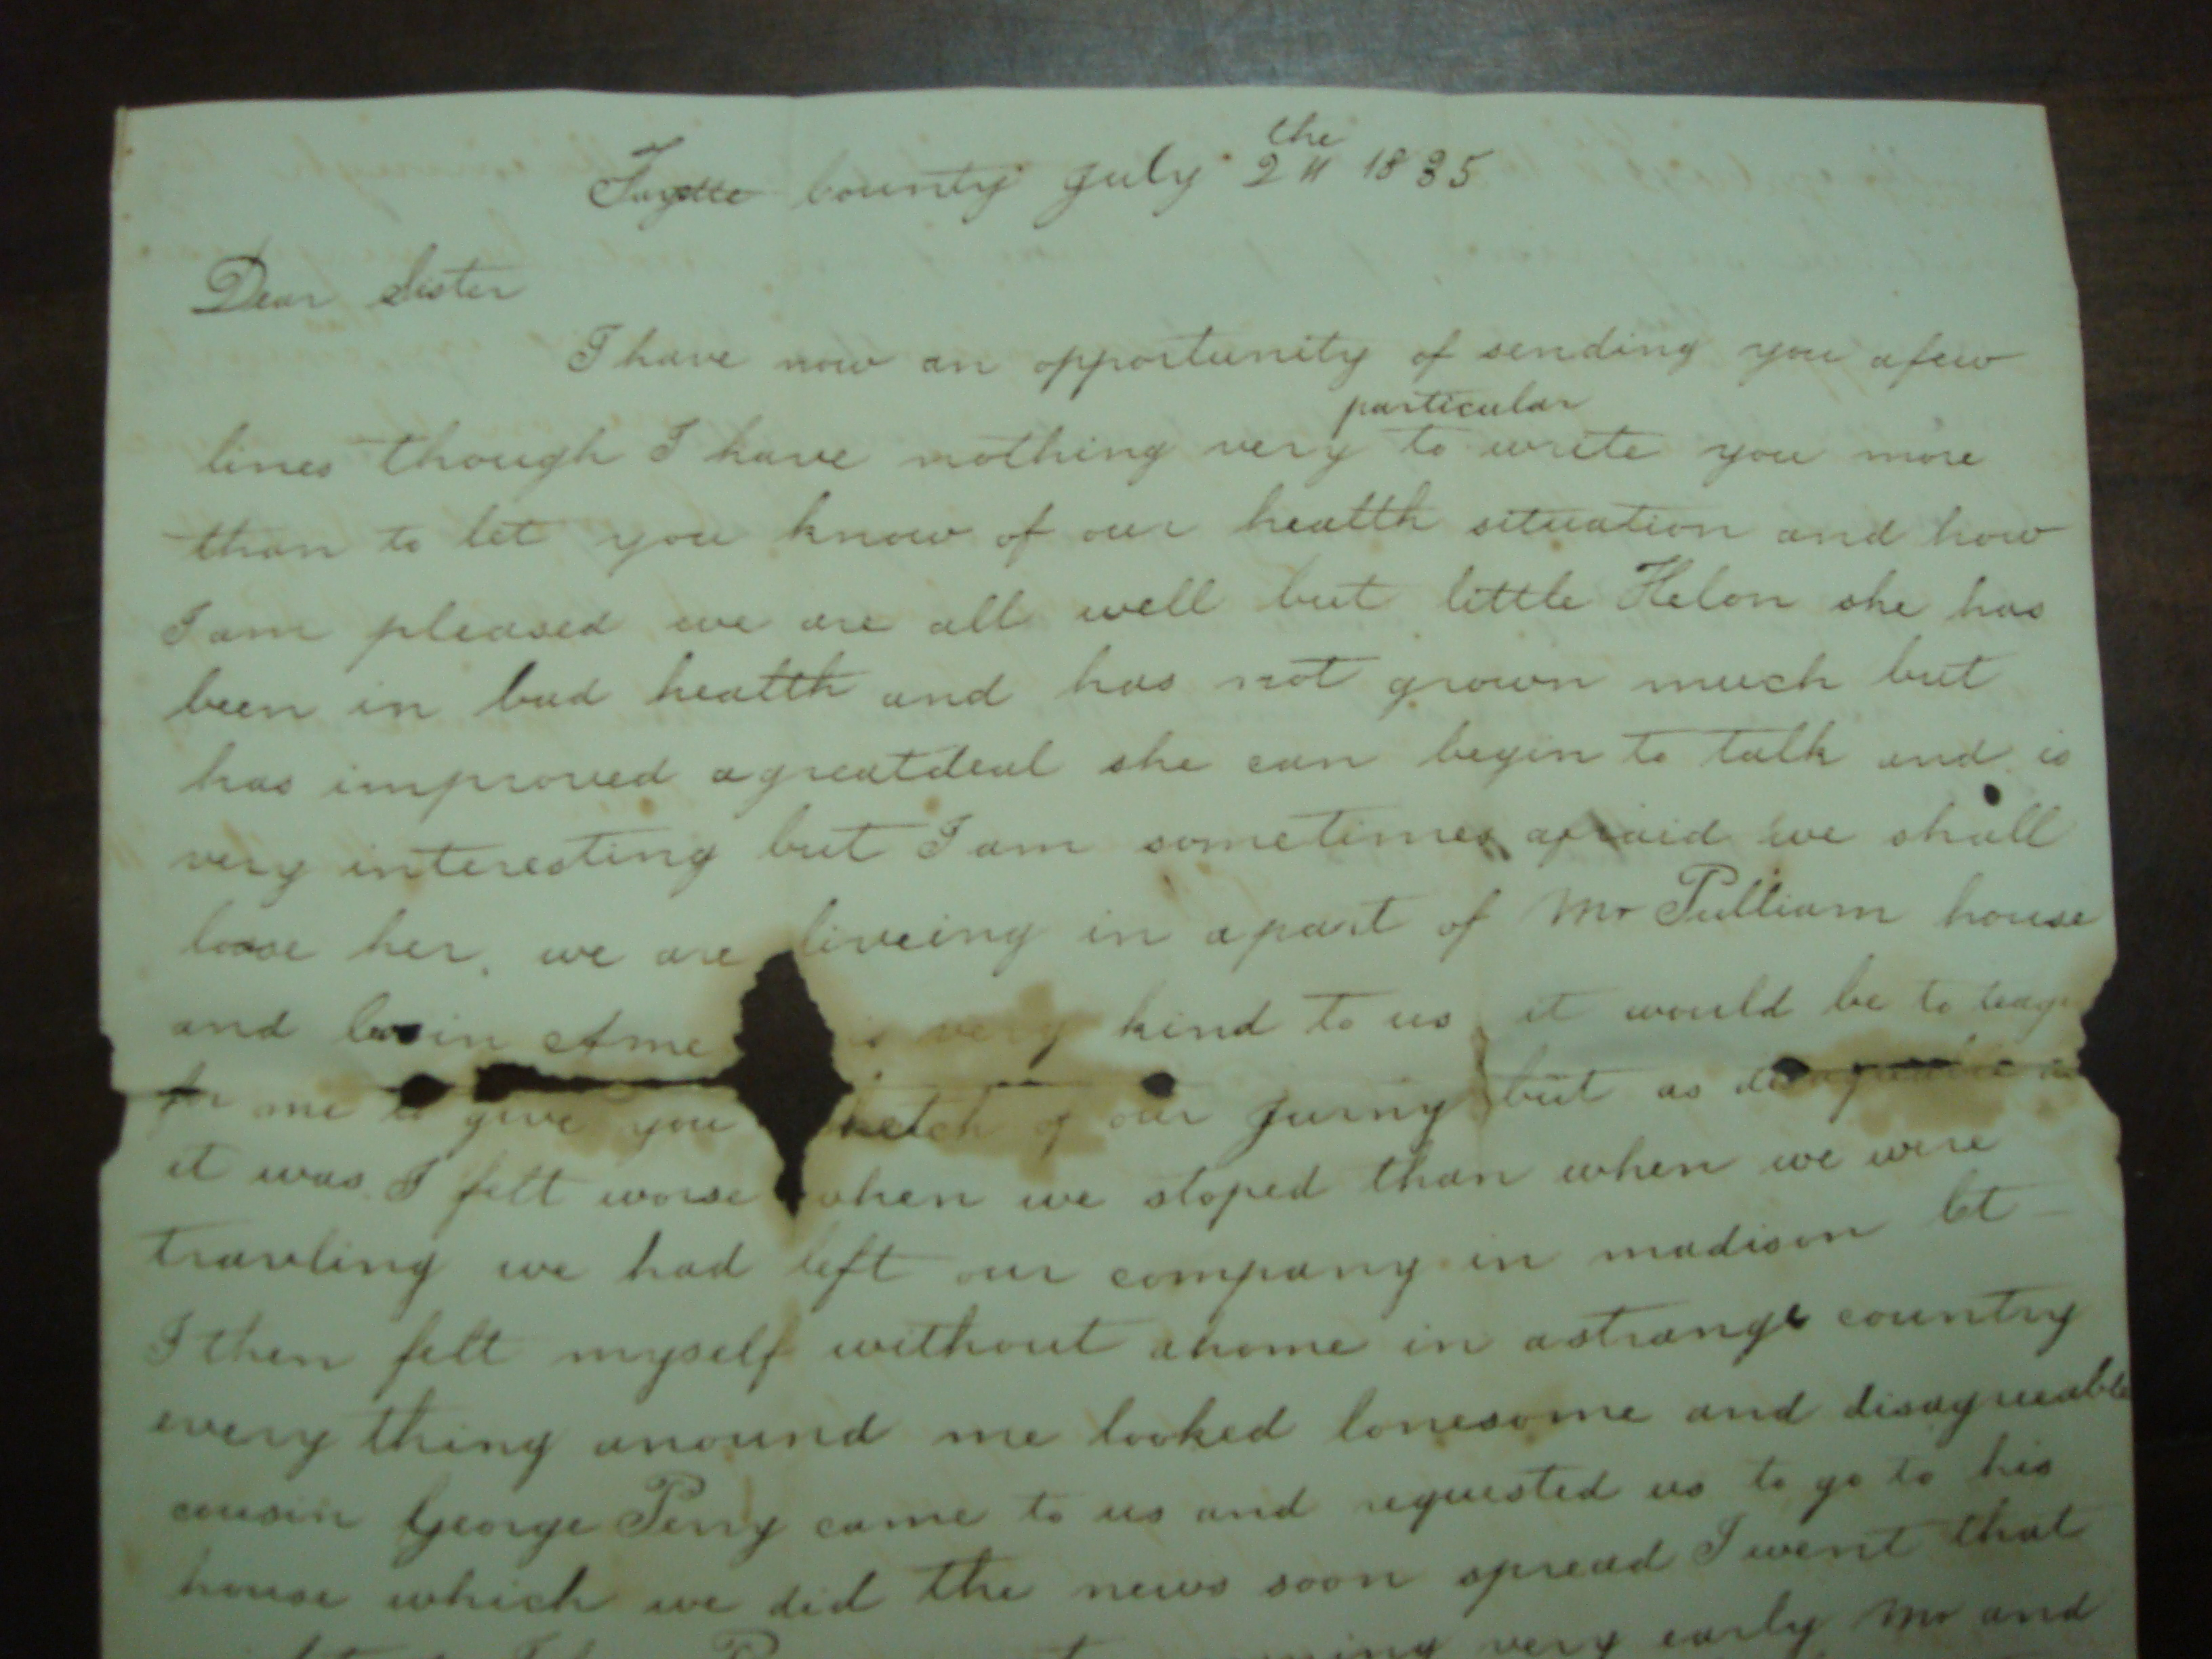 Fayette County July the 2 " 1835
Dear Sister
I have now an opportunity of sending you afew
lines though I have nothing very particular to write you more
than to let you know of our health situation and how
I am pleased we are all well but little Helon she has
been in bad health and has not grown much but
has improved agreatdeal she can begin to talk and is
very interesting but I am sometimes afraid we shall
loose her. we are liveing in apart of Mr Pulliam house
and Cosin Ame is very kind to us it would be to
for me to give you ketch of our jurny but as
it was I felt worse when we stoped than when we were
travling we had left our company in madison Ct
I then felt myself without ahome in astrange country
every thing around me looked lonesome and disagreeable
cousin George Perry came to us and requested us to go to his
house which we did the news soon spread I went that
very early Mr and